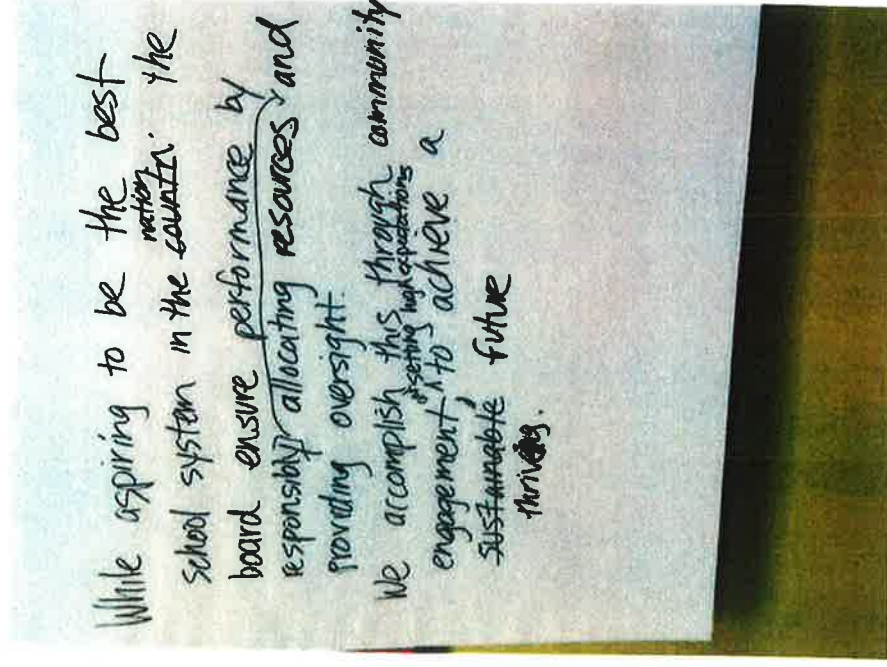 While aspiring to be the best
nation
school system in the country. the
board ensure performance by
responsibly allocating resources and
providing oversight.
We accomplish this through community
setting high expectations
engagement, to achieve a
sustainable future
thriving.